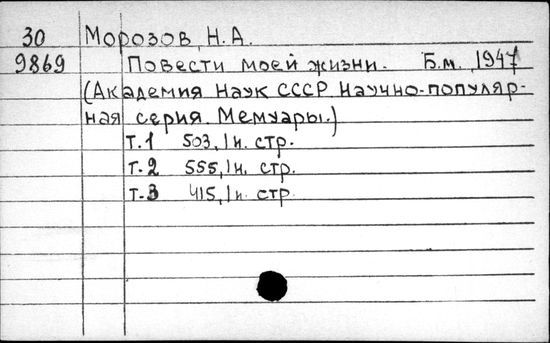 30 Морозов, Н.А.
9869 Повести моей жизни. Б.м., 1947
(Академия Наук СССР Научно-популяр-
ная серия. Мемуары.)
т.1 503, 1 н. стр.
т.2 555, 1 н. стр.
т.3 415, 1 н. стр.